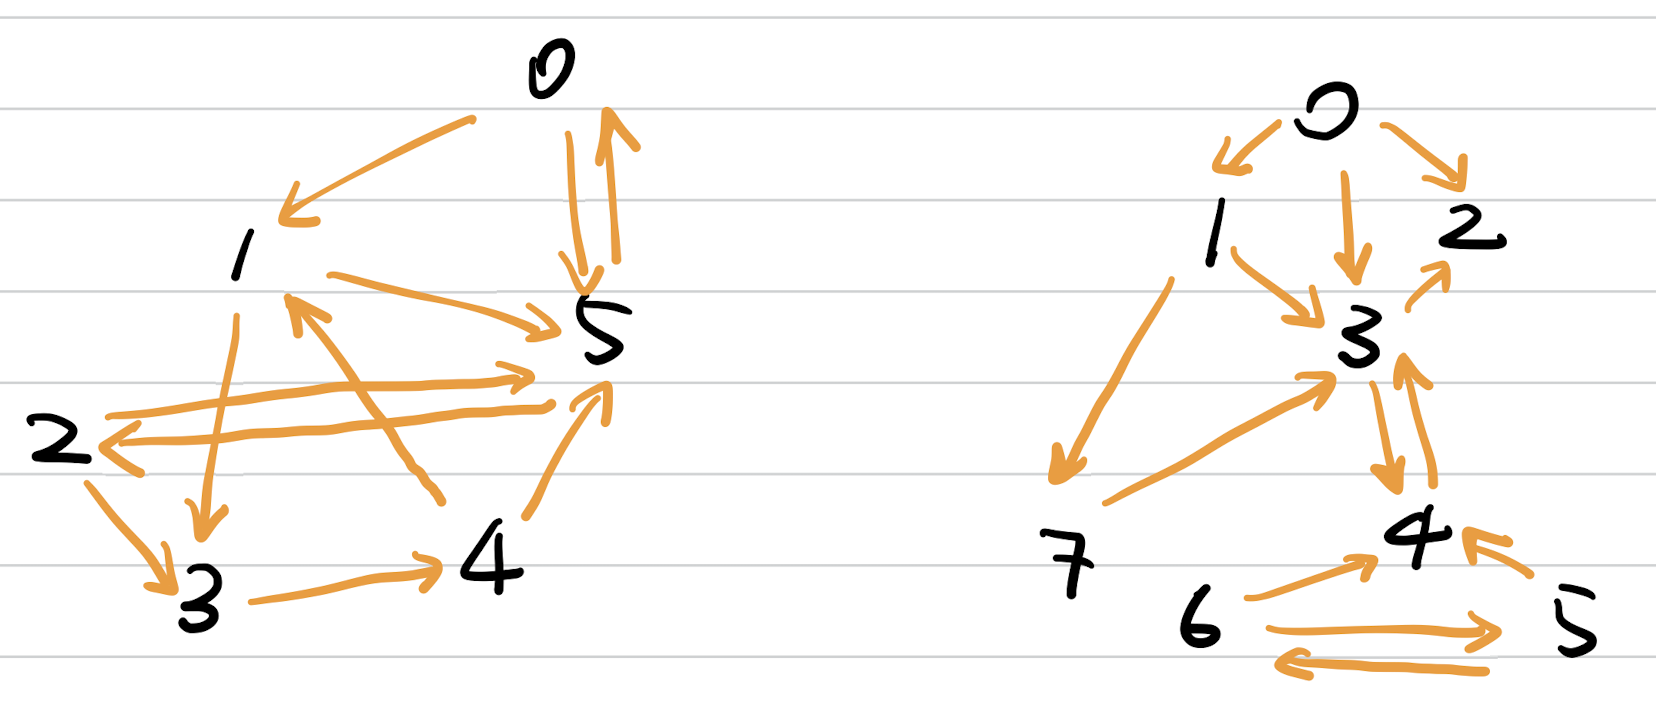 0
1
5
2
3
4
0
1
2
3
7
4
6
5